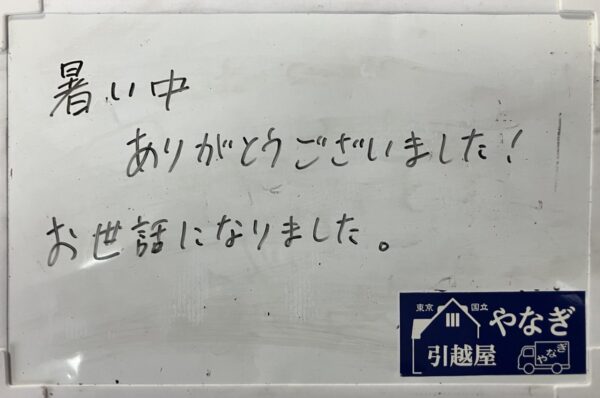 暑い中
ありがとうございました!
お世話になりました。
東京 国立 やなぎ
引越屋 やなぎ